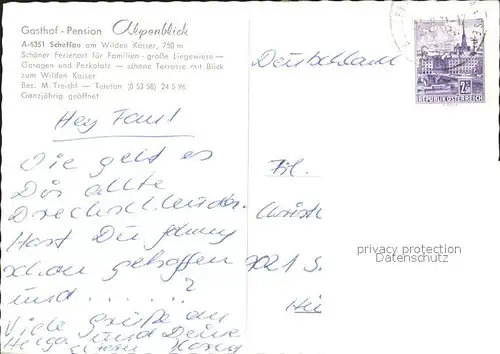 Gasthof - Pension Alpenblick
A-6351 Scheffau am Wilden Kaiser, 750 m
Schöner Ferienort für Familien - große Liegewiese —
Garagen und Parkplatz — schöne Terrasse mit Blick
zum Wilden Kaiser
Bes. M. Treichl — Telefon (0 53 58) 24 5 96
Ganzjährig geöffnet
REPUBLIK ÖSTERREICH
Deutschland
Hey
Wie geht es
Dir allte
Hast Du
schon getroffen
und . . . . . . ?
Viele Grüße an
Helga und Deine
Frl.
Christi
8021 S.
privacy protection
Datenschutz